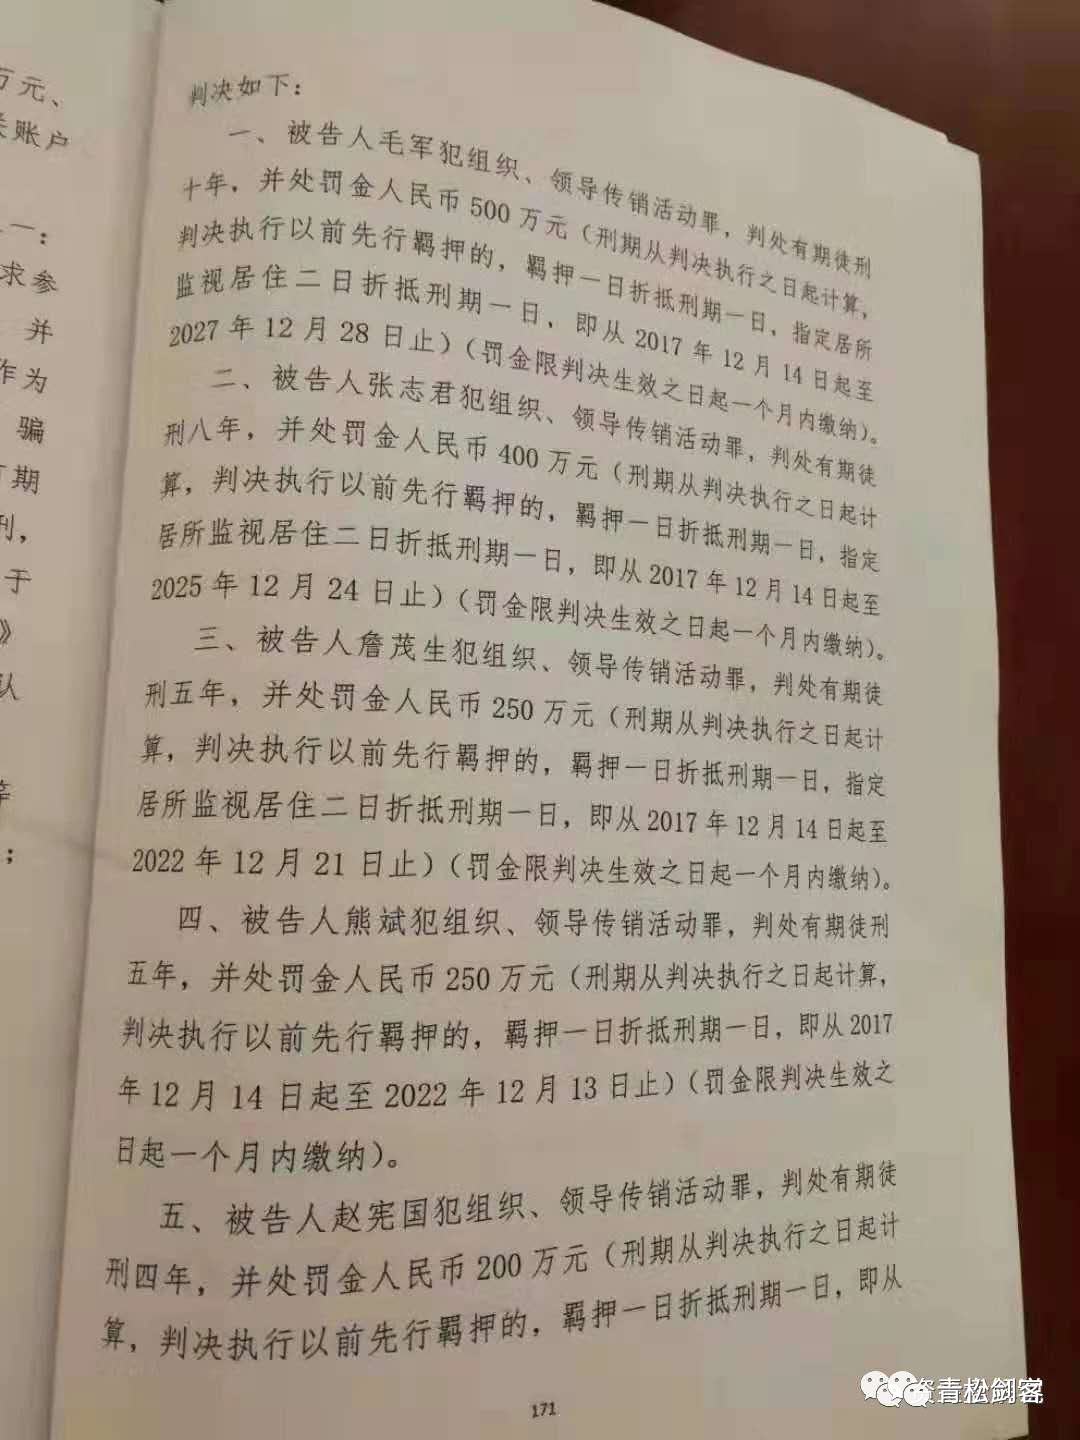 万元、
账户
一：
求参
并
作为
骗
期
刑，
于
》
认
等
；
判决如下：
一、被告人毛军犯组织、领导传销活动罪，判处有期徒刑
十年，并处罚金人民币500万元（刑期从判决执行之日起计算，
判决执行以前先行羁押的，羁押一日折抵刑期一日，指定居所
监视居住二日折抵刑期一日，即从2017年12月14日起至
2027年12月28日止）（罚金限判决生效之日起一个月内缴纳）。
二、被告人张志君犯组织、领导传销活动罪，判处有期徒
刑八年，并处罚金人民币400万元（刑期从判决执行之日起计
算，判决执行以前先行羁押的，羁押一日折抵刑期一日，指定
居所监视居住二日折抵刑期一日，即从2017年12月14日起至
2025年12月24日止）（罚金限判决生效之日起一个月内缴纳）。
三、被告人詹茂生犯组织、领导传销活动罪，判处有期徒
刑五年，并处罚金人民币250万元（刑期从判决执行之日起计
算，判决执行以前先行羁押的，羁押一日折抵刑期一日，指定
居所监视居住二日折抵刑期一日，即从2017年12月14日起至
2022年12月21日止）（罚金限判决生效之日起一个月内缴纳）。
四、被告人熊斌犯组织、领导传销活动罪，判处有期徒刑
五年，并处罚金人民币250万元（刑期从判决执行之日起计算，
判决执行以前先行羁押的，羁押一日折抵刑期一日，即从2017
年12月14日起至2022年12月13日止）（罚金限判决生效之
日起一个月内缴纳）。
五、被告人赵宪国犯组织、领导传销活动罪，判处有期徒
刑四年，并处罚金人民币200万元（刑期从判决执行之日起计
算，判决执行以前先行羁押的，羁押一日折抵刑期一日，即从
171
青松剑客